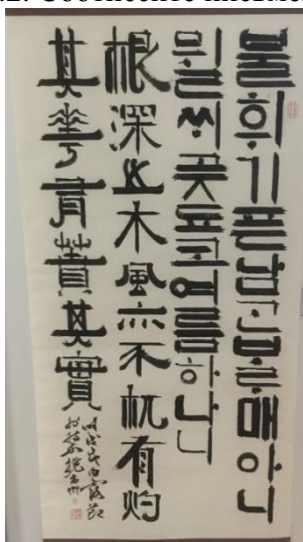 불휘기픈남ᄀᆞᆫᄇᆞᄅᆞ매아니
뮐ᄊᆡ곶됴코여름하나니
根深之木風亦不杌有灼
其華有蕡其實